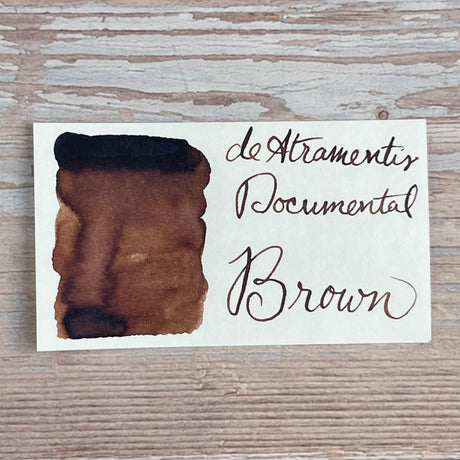 de Atramentis
Documental
Brown